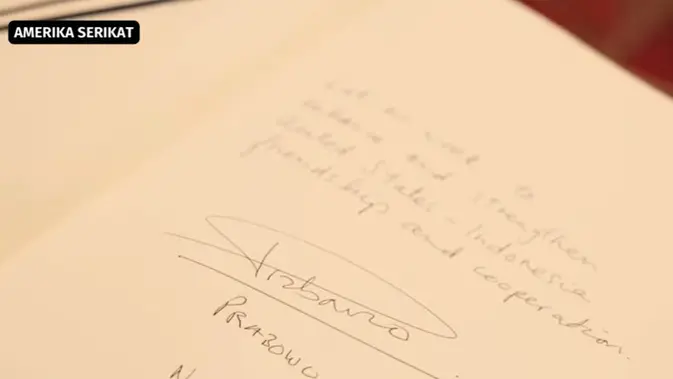 AMERIKA SERIKAT
Let us work to
enhance and strengthen
United States - Indonesia
friendship and cooperation.
Prabowo
PRABOWO
N